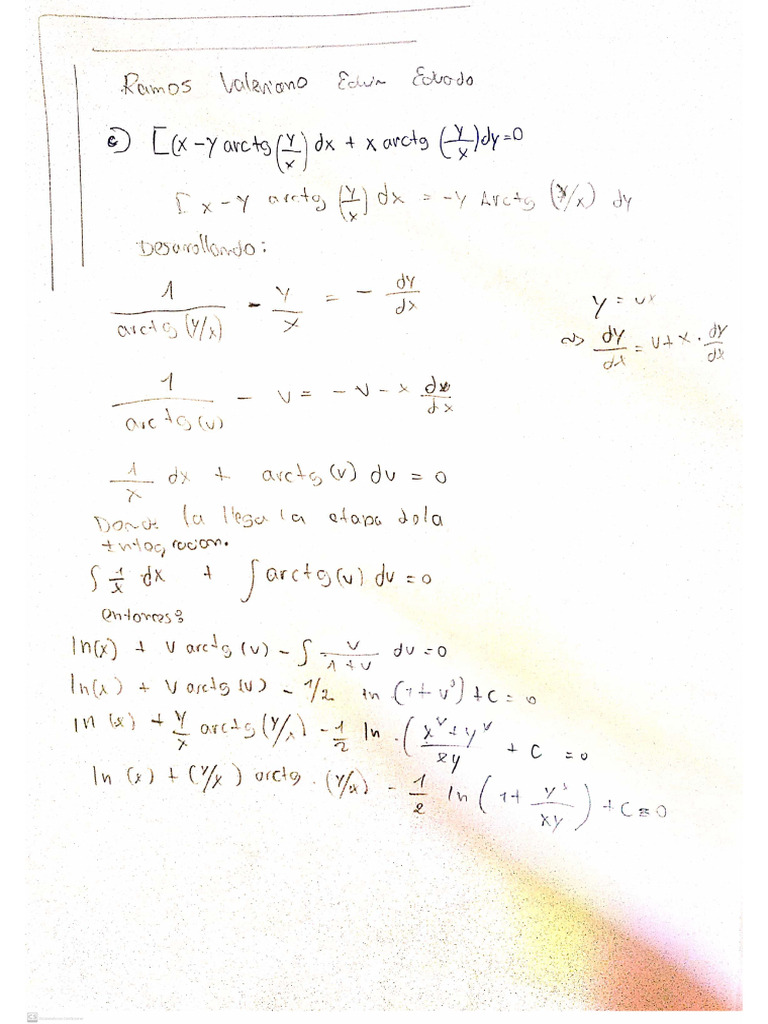 Ramos Valeriano Edwin Eduardo
c) [(x - y arctg(y/x) dx + x arctg (y/x) dy = 0
[x - y arctg (y/x) dx = -y Arctg (y/x) dy
Desarollando:
1/arctg(y/x) - y/x = - dy/dx
y = vx
~> dy/dx = v + x · dy/dx
1/arctg(v) - v = - v - x dv/dx
1/x dx + arctg(v) dv = 0
Donde la llega la etapa dola
Integracion.
∫ 1/x dx + ∫ arctg(v) dv = 0
entonces:
ln(x) + v arctg(v) - ∫ v/1+v dv = 0
ln(x) + v arctg(v) - 1/2 ln (1 + v²) + c = 0
ln(x) + y/x arctg(y/x) - 1/2 ln · (x² + y²/xy + C = 0
ln(x) + (y/x) arctg · (y/x) - 1/2 ln (1 + y²/xy) + C = 0